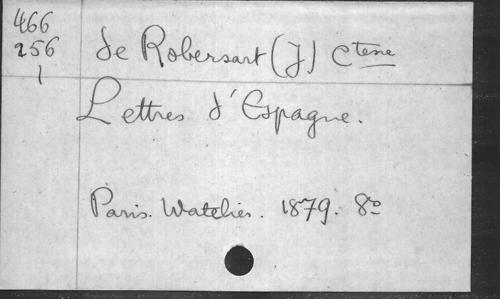 466
256
1
de Robersart (J) Ctesse
Lettres d'Espagne.
Paris. Watelier. 1879. 8º